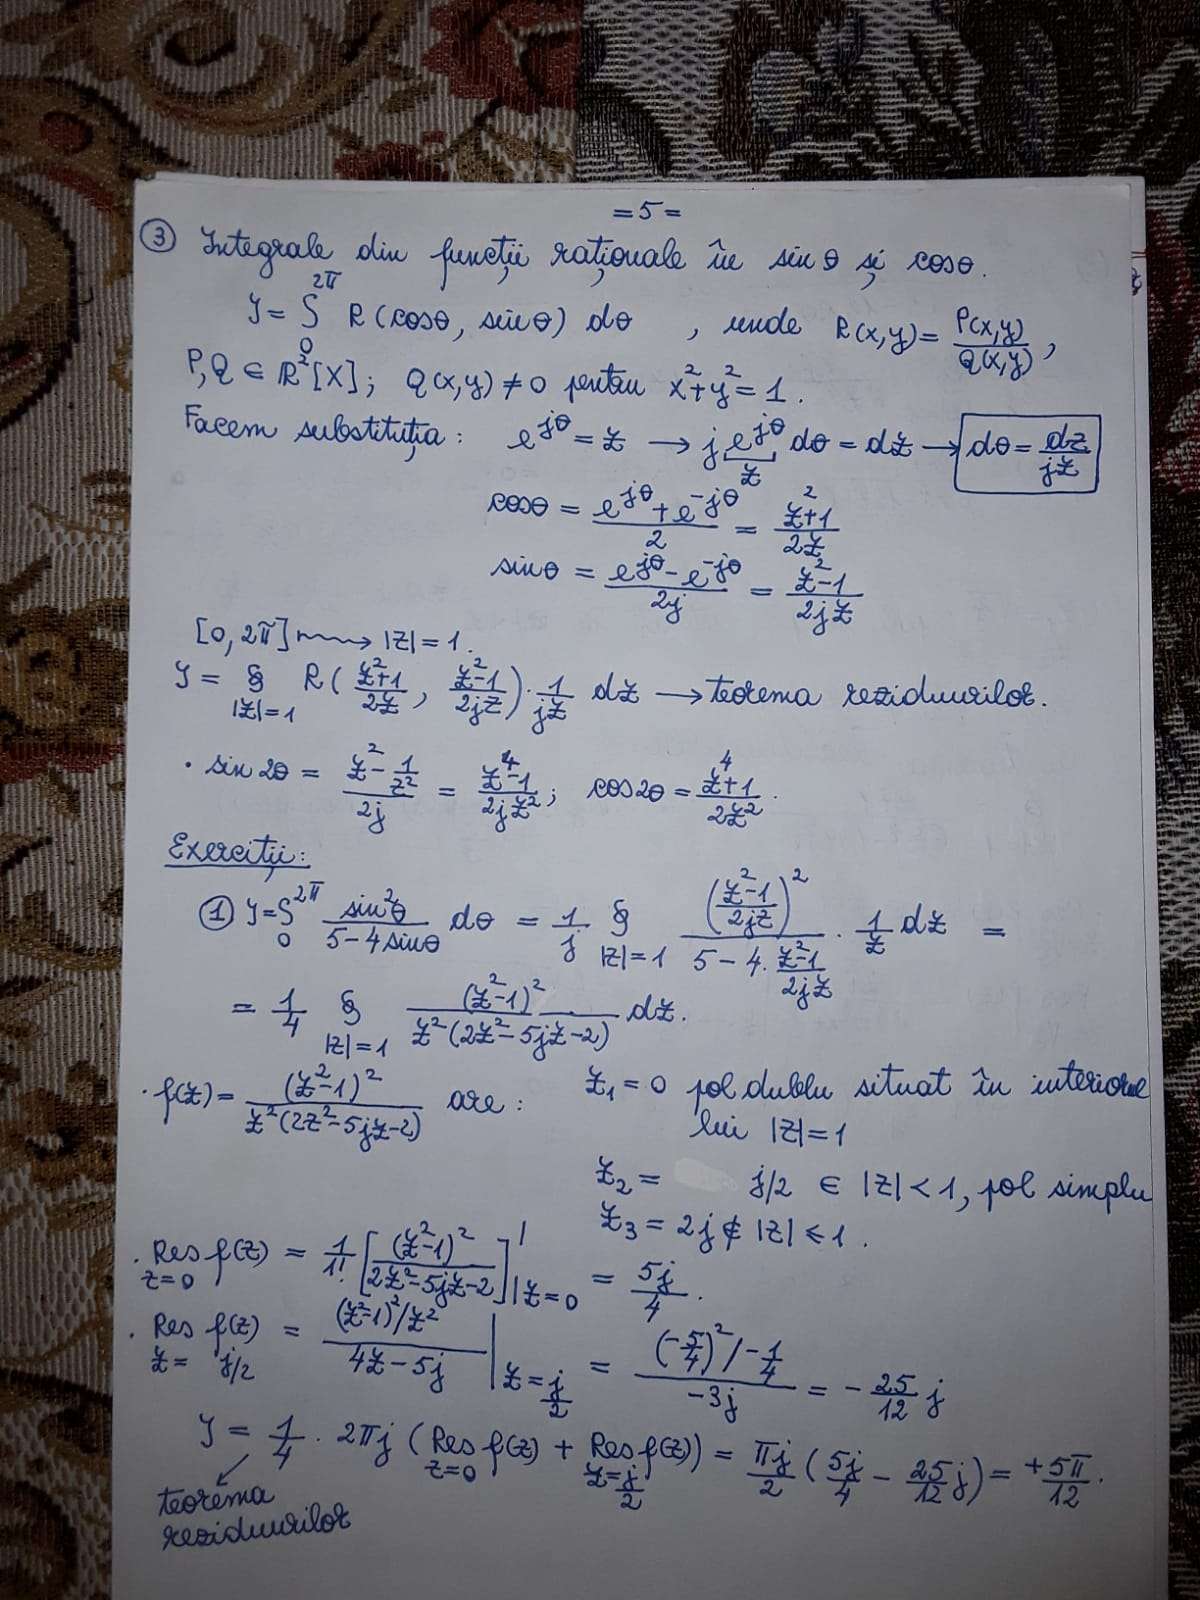 =5=
③ Integrale din funcții raționale în sin θ și cosθ.
J = ∫₀^2π R(cosθ, sinθ) dθ , unde R(x,y) = P(x,y)/Q(x,y) ,
P,Q ∈ R²[X]; Q(x,y) ≠ 0 pentru x²+y² = 1.
Facem substituția: e^jθ = z → j e^jθ dθ = dz → dθ = dz/jz
z
cosθ = (e^jθ + e^-jθ)/2 = (z²+1)/2z
sinθ = (e^jθ - e^-jθ)/2j = (z²-1)/2jz
[0, 2π] ⟿ |z| = 1.
J = ∮_|z|=1 R((z²+1)/2z , (z²-1)/2jz) · 1/jz dz → teorema reziduurilor.
· sin 2θ = (z² - 1/z²)/2j = (z⁴-1)/2jz² ; cos2θ = (z⁴+1)/2z² .
Exerciții:
① J = ∫₀^2π sin²θ/(5-4sinθ) dθ = 1/j ∮_|z|=1 ((z²-1)/2jz)²/(5 - 4·(z²-1)/2jz) · 1/z dz =
= 1/4 ∮_|z|=1 (z²-1)²/(z²(2z²-5jz-2)) dz.
· f(z) = (z²-1)²/(z²(2z²-5jz-2)) are : z₁ = 0 pol dublu situat în interiorul
lui |z| = 1
z₂ = j/2 ∈ |z| < 1, pol simplu
z₃ = 2j ∉ |z| ≤ 1 .
· Res_z=0 f(z) = 1/1! [(z²-1)²/(2z²-5jz-2)]' |z=0 = 5j/4 .
· Res_z=j/2 f(z) = ((z²-1)²/z²)/(4z-5j) |z=j/2 = ((-5/4)²/-1/4)/(-3j) = - 25/12 j
J = 1/4 · 2πj (Res_z=0 f(z) + Res_z=j/2 f(z)) = πj/2 (5j/4 - 25/12 j) = +5π/12 .
teorema
reziduurilor